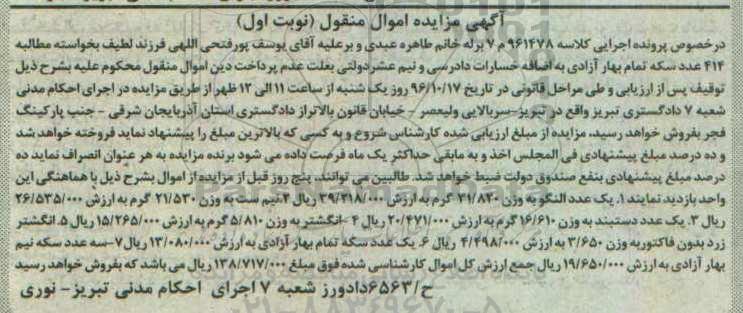 آگهی مزایده اموال منقول (نوبت اول)
درخصوص پرونده اجرایی کلاسه ۹۶۱۴۷۸ م ۷ برله خانم طاهره عبدی و برعلیه آقای یوسف پورفتحی اللهی فرزند لطیف بخواسته مطالبه
۴۱۴ عدد سکه تمام بهار آزادی به اضافه خسارات دادرسی و نیم عشر دولتی بعلت عدم پرداخت دین اموال منقول محکوم علیه بشرح ذیل
توقیف پس از ارزیابی و طی مراحل قانونی در تاریخ ۹۶/۱۰/۱۷ روز یک شنبه از ساعت ۱۱ الی ۱۲ ظهر از طریق مزایده در اجرای احکام مدنی
شعبه ۷ دادگستری تبریز واقع در تبریز-سربالایی ولیعصر - خیابان قانون بالاتر از دادگستری استان آذربایجان شرقی - جنب پارکینگ
فجر بفروش خواهد رسید، مزایده از مبلغ ارزیابی شده کارشناس شروع و به کسی که بالاترین مبلغ را پیشنهاد نماید فروخته خواهد شد
و ده درصد مبلغ پیشنهادی فی المجلس اخذ و به مابقی حداکثر یک ماه فرصت داده می شود برنده مزایده به هر عنوان انصراف نماید ده
درصد مبلغ پیشنهادی بنفع صندوق دولت ضبط خواهد شد. طالبین می توانند، پنج روز قبل از مزایده از اموال بشرح ذیل با هماهنگی این
واحد بازدید نمایند ۱. یک عدد النگو به وزن ۳۱/۸۳۰ گرم به ارزش ۳۹/۲۱۸/۰۰۰ ریال ۲.نیم ست به وزن ۲۱/۵۳۰ گرم به ارزش ۲۶/۵۳۵/۰۰۰
ریال ۳. یک عدد دستبند به وزن ۱۶/۶۱۰ گرم به ارزش ۲۰/۴۷۱/۰۰۰ ریال ۴ -انگشتر به وزن ۵/۸۱۰ گرم به ارزش ۱۵/۲۶۵/۰۰۰ ریال ۵. انگشتر
زرد بدون فاکتور به وزن ۳/۶۵۰ به ارزش ۴/۴۹۸/۰۰۰ ریال ۶. یک عدد سکه تمام بهار آزادی به ارزش ۱۳/۰۸۰/۰۰۰ ریال ۷-سه عدد سکه نیم
بهار آزادی به ارزش ۱۹/۶۵۰/۰۰۰ ریال جمع ارزش کل اموال کارشناسی شده فوق مبلغ ۱۳۸/۷۱۷/۰۰۰ ریال می باشد که بفروش خواهد رسید
ح/۶۵۶۳ دادورز شعبه ۷ اجرای احکام مدنی تبریز- نوری
۰۲۱-۸۸۳۴۹۶۷۰-۵